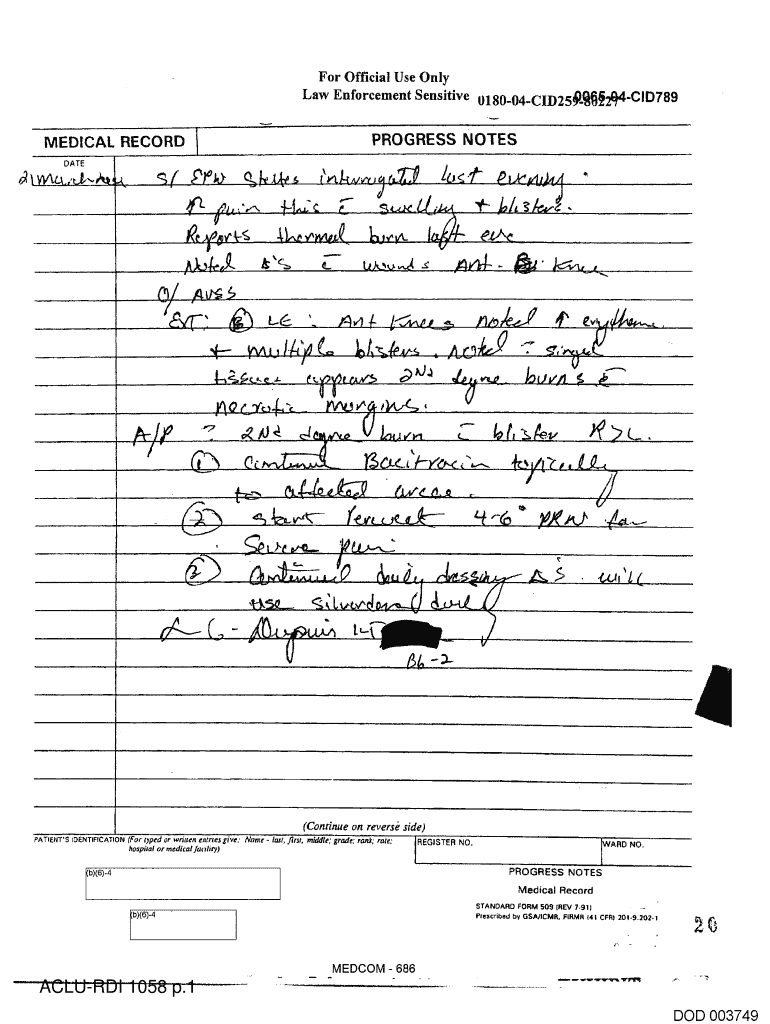 For Official Use Only
Law Enforcement Sensitive 0180-04-CID259-80227
0065-04-CID789
MEDICAL RECORD
PROGRESS NOTES
DATE
21 March S/ EPW States interrogated last evening.
↑ pain this c̄ swelling + blisters.
Reports thermal burn last eve
Noted Δ's c̄ wounds Ant. Knee
O/ AVSS
EXT: Ⓑ LE: Ant Knees noted ↑ erythema
+ multiple blisters. noted ? singed
tissue appears 2nd degree burns c̄
necrotic margins.
A/P ? 2nd degree burn c̄ blister R>L.
① Continue Bacitracin topically
to affected areas.
② Start Percocet 4-6° PRN for
Severe pain
③ Continued daily dressing Δ's. will
use silverdene
B6-2
(Continue on reverse side)
PATIENT'S IDENTIFICATION (For typed or written entries give: Name - last, first, middle; grade; rank; rate; hospital or medical facility)
REGISTER NO.
WARD NO.
(b)(6)-4
(b)(6)-4
PROGRESS NOTES
Medical Record
STANDARD FORM 509 (REV 7-91)
Prescribed by GSA/ICMR, FIRMR (41 CFR) 201-9.202-1
20
MEDCOM - 686
ACLU-RDI 1058 p.1
DOD 003749